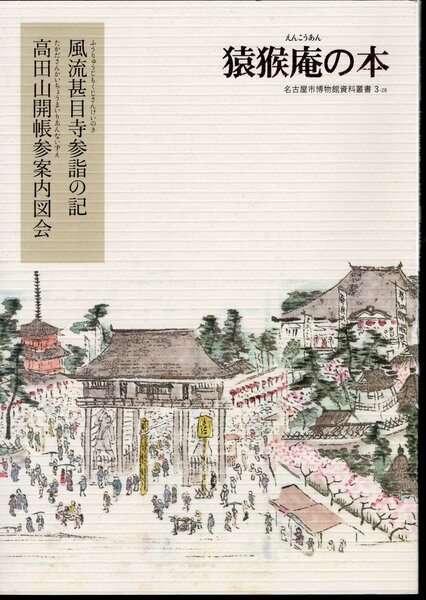 えんこうあん
猿猴庵の本
名古屋市博物館資料叢書 3-28
ふうりゅうじもくじさんけいのき
風流甚目寺参詣の記
たかださんかいちょうまいりあんないずえ
高田山開帳参案内図会